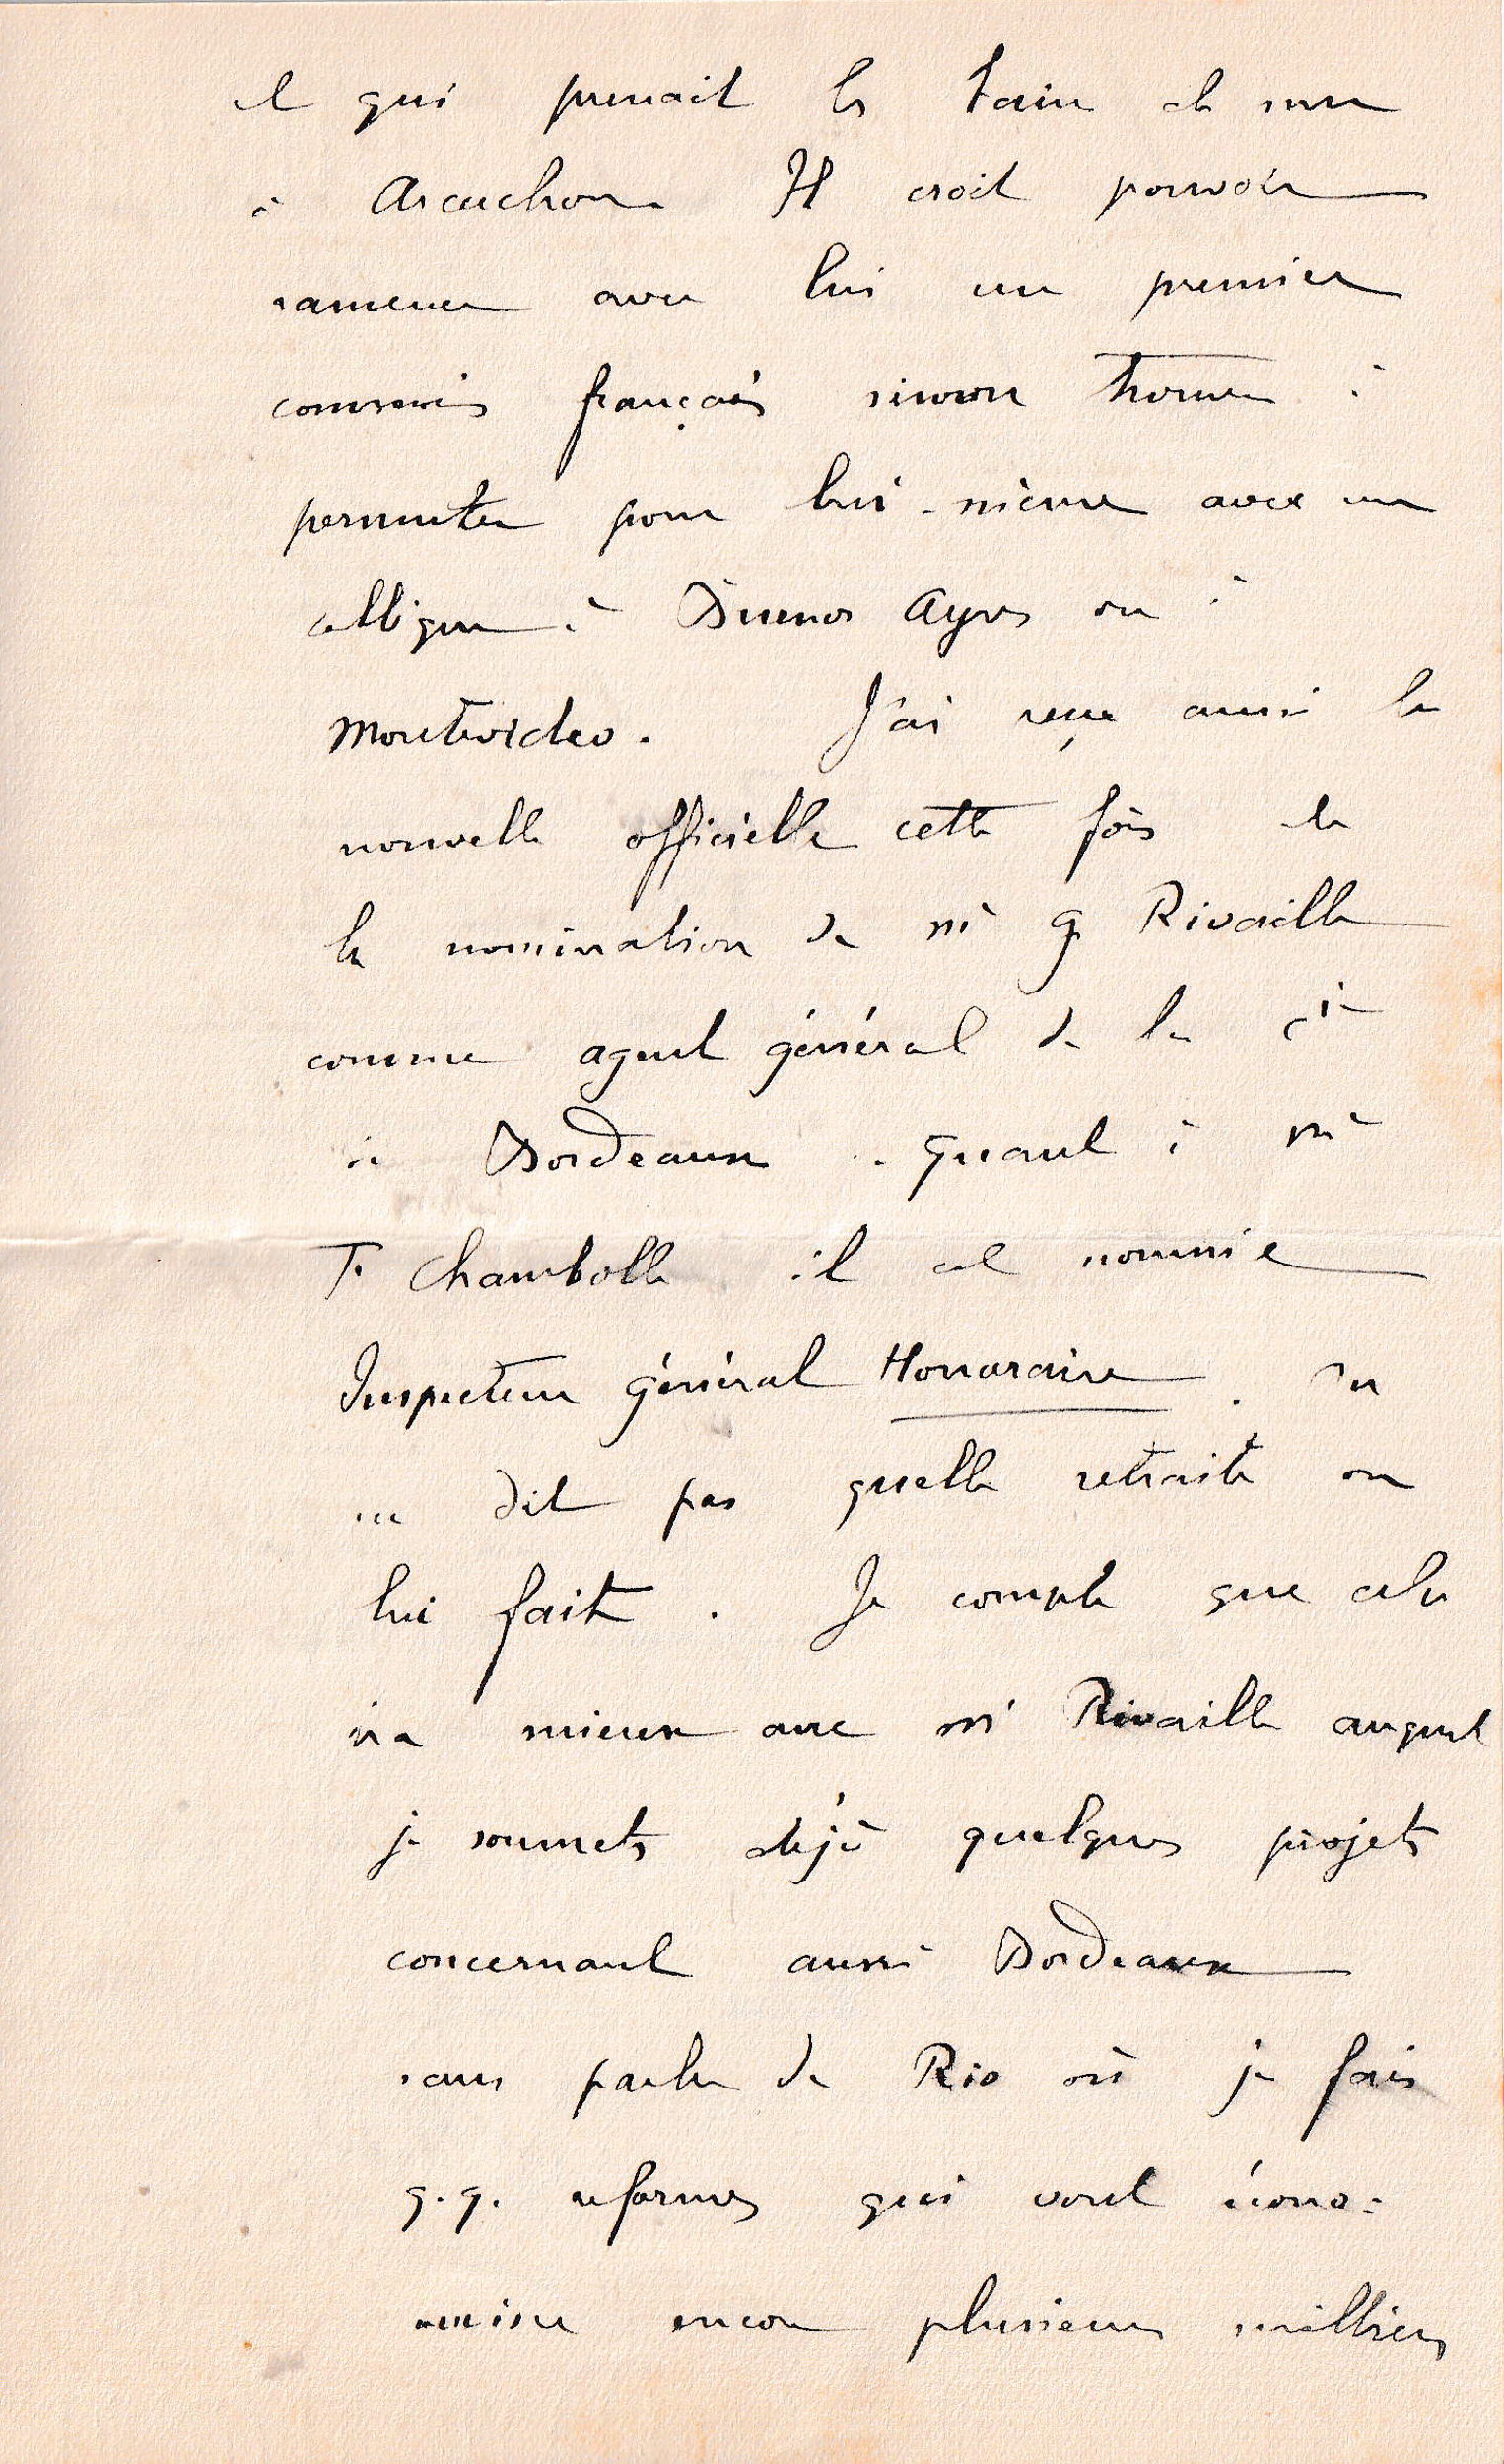 et qui prenait les bains de mer
à Arcachon. Il croit pouvoir
ramener avec lui un premier
commis français sinon trouver à
permuter pour lui-même avec un
collègue à Buenos Ayres ou à
Montevideo. J'ai reçu aussi la
nouvelle officielle cette fois de
la nomination de Mr G Rivaille
comme agent général de la Cie
à Bordeaux. quant à Mr
T. Chambolle il est nommé
Inspecteur général Honoraire. On
ne dit pas quelle retraite on
lui fait. Je compte que cela
ira mieux avec Mr Rivaille auquel
je soumets déjà quelques projets
concernant aussi Bordeaux
sans parler de Rio où je fais
q.q. reformes qui vont écono=
miser encore plusieurs milliers